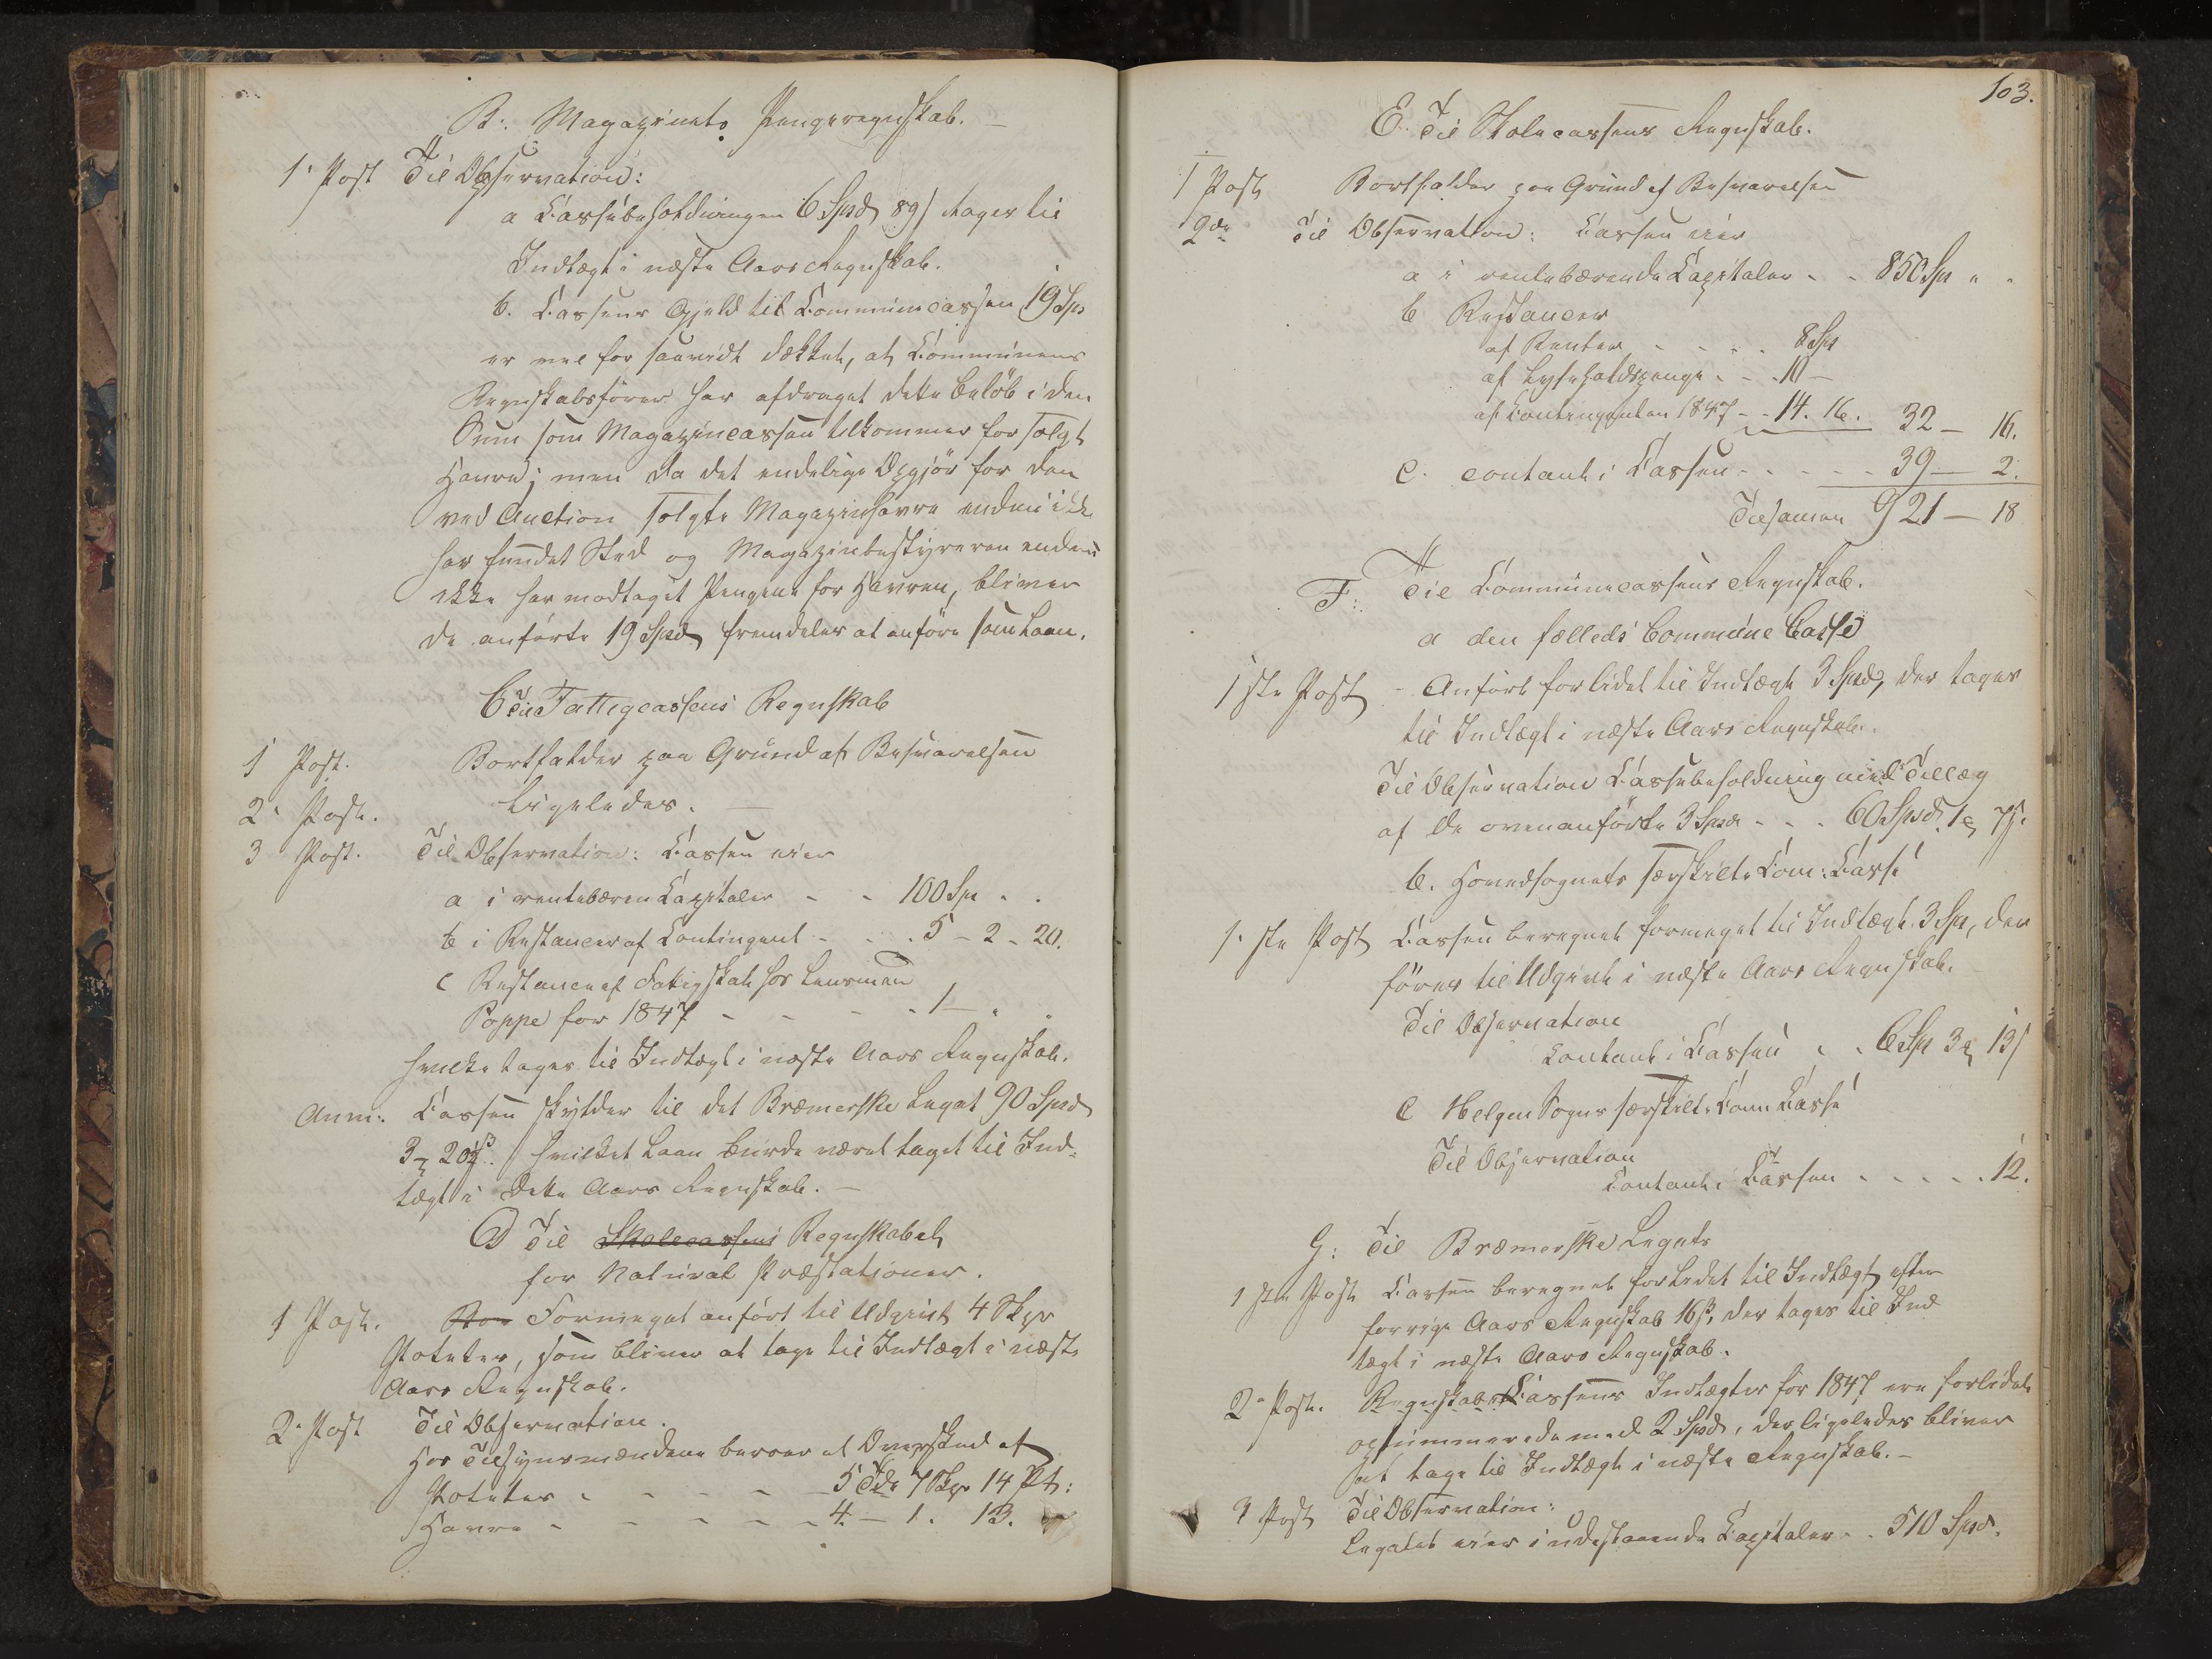 B. Magazinets Pengeregnskab. —
1. Post Til Observation:
a Cassebeholdningen 6 Spd 89 s tages til
Indtægt i næste Aars Regnskab.
b. Cassens Gjeld til Communecassen 19 Sp
er vel for saavidt dækket, at Communens
Regnskabsfører har afdraget dette Beløb i den
Sum som Magazincassen tilkommer for solgt
Havre; men da det endelige Opgjör for den
ved Auction solgte Magazinhavre endnu ikke
har fundet Sted og Magazinbestyreren endnu
ikke har modtaget Pengene for Havren, bliver
de anførte 19 Spd fremdeles at anföre som Laan.
C Til Fattigcassens Regnskab
1 Post. Bortfalder paa Grund af Besvarelsen
2. Post. Ligeledes. —
3 Post. Til Observation: Cassen eier
a i rentebæren Capitaler - - 100 Sp " "
b i Restancer af Contingent - - - 5 - 2 - 20.
c Restance af Fattigskat hos Lensmand
Poppe for 1847 - - - - 1 - " "
hvilke tages til Indtægt i næste Aars Regnskab.
Anm: Cassen skylder til det Bræmerske Legat 90 Spd
hvilket Laan burde været taget til Ind-
tægt i dette Aars Regnskab. —
D Til Skolecassens Regnskabet
for Natural Præstationer.
1 Post. Formeget anført til Udgivt 4 Skpr
Poteter, som bliver at tage til Indtægt i næste
Aars Regnskab.
2. Post Til Observation.
Hos Tilsynsmændene beroer et Overskud af
Poteter - - - - - 5 Tdr 7 Skpr 14 Pt:
Havre - - - - - 4 - 1. 13.
103.
E. Til Skolecassens Regnskab.
1 Post Bortfalder paa Grund af Besvarelsen
2de Til Observation: Cassen eier
a i rentebærende Capitaler - - 850 Sp " "
b Restancer
af Renter - - - - 8 Sp
af Lyseholdspenge - - 10 -
af Contingenten 1847 - - 14. 16. 32 - 16.
c. contant i Cassen - - - - - 39 - 2.
Tilsamen 921 - 18
F. Til Communecassens Regnskab.
a den fælleds Commune Casse
1ste Post - Anført forlidet til Indtægt 3 Spd, der tages
til Indtægt i næste Aars Regnskab.
Til Observation Cassebeholdning med Tillæg
af de ovenanførte 3 Spd - - - 60 Spd 1 7 s.
b. Hovedsognets særskilte Com: Casse
1.ste Post Cassen beregnet formeget til Indtægt 3 Sp, der
föres til Udgivt i næste Aars Regnskab.
Til Observation
Contant i Cassen - - 6 Sp 3 13 s
c Helgen Sogns særskilte Com Casse
Til Observation
Contant i Cassen - - - - - 12.
G: Til Bræmerske Legats
1ste Post Cassen beregnet forlidet til Indtægt efter
forrige Aars Regnskab 16 s, der tages til Ind
tægt i næste Aars Regnskab.
2. Post. Regnskabs Cassens Indtægter for 1847 ere forlidet
opsummerede med 2 Spd, der ligeledes bliver
at tage til Indtægt i næste Regnskab. -
3 Post Til Observation:
Legatet eier i udestaaende Capitaler - - 510 Spd.